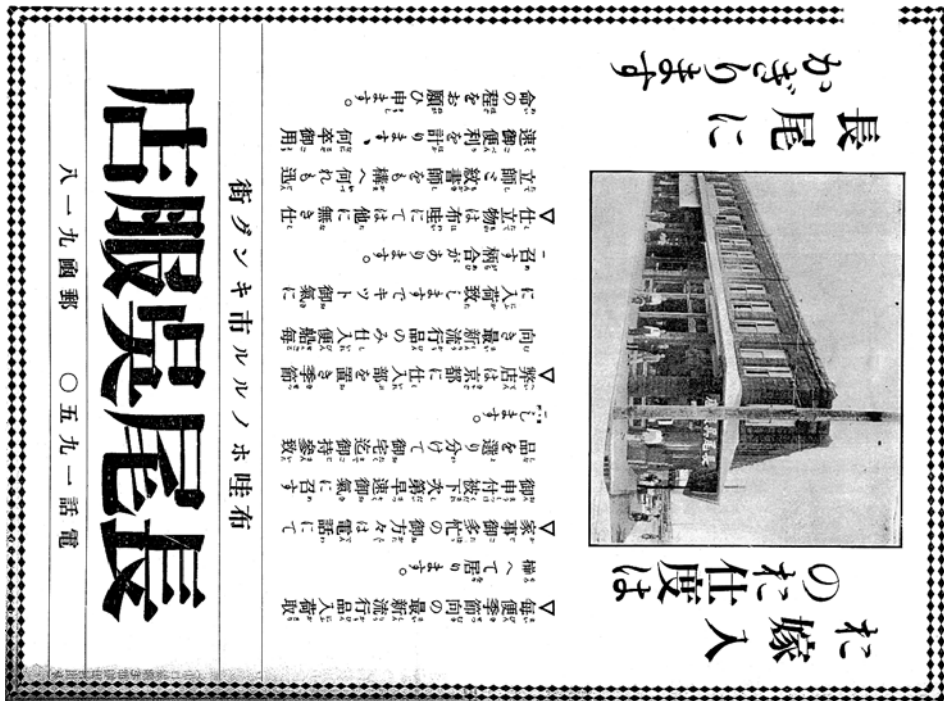 お嫁入
のお仕度は
長尾に
かぎります
▽毎便季節向の最新流行品入荷取
揃へて居ります。
▽家事御多忙の御方々は電話にて
御申付被下次第早速御氣に召す
品を選り分けて御宅迄御持參致
します。
▽弊店は京都に仕入部を置き季節
向き最新流行品のみ仕入便船毎
に入荷致しますでキット御氣に
召す柄合があります。
▽仕立物は布哇にては他に無き仕
立師と紋書師をも構へ何れも迅
速御便利を計ります、何卒御用
命の程をお願ひ申ます。
布哇ホノルル市キング街
長尾呉服店
電話一九五〇 郵凾九一八